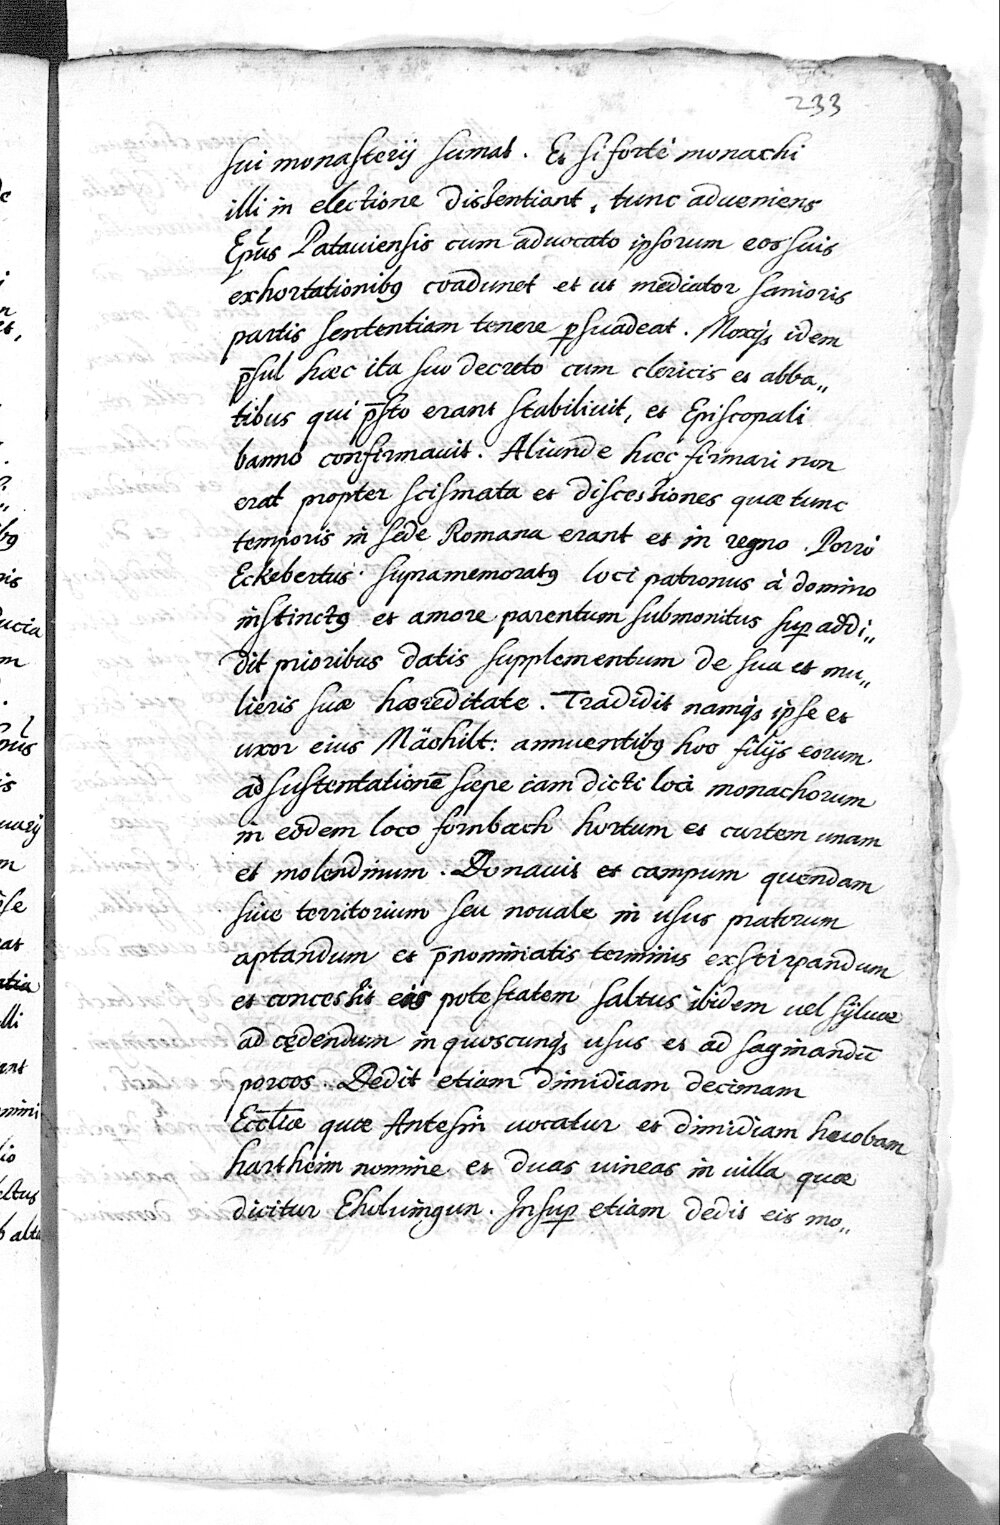 233
sui monasterij sumat. Et si fortè monachi
illi in electione dissentiant, tunc adueniens
Ep̄us Patauiensis cum aduocato ipsorum eos suis
exhortationibꝰ coadunet et ut mediator sanioris
partis sententiam tenere ꝑsuadeat. Moxqꝫ idem
p̄sul hæc ita suo decreto cum clericis et abba„
tibus qui p̄sto erant stabiliuit, et Episcopali
banno confirmauit. Aliunde hæc firmari non
erat propter scismata et discessiones quæ tunc
temporis in sede Romana erant et in regno. Porrò
Eckebertus supramemoratꝰ loci patronus à domino
instinctꝰ et amore parentum submonitus suꝑ addi„
dit prioribus datis supplementum de sua et mu„
lieris suæ hæreditate. Tradidit namqꝫ ipse et
uxor eius Mächilt: annuentibꝰ hoc filijs eorum
ad sustentationē sæpe iam dicti loci monachorum
in eodem loco fornbach hortum et curtem unam
et molendinum. Donauit et campum quendam
siue territorium seu nouale in usus pratorum
aptandum et p̄nominatis terminis exstirpandum
et concessit eis potestatem saltus ibidem uel sÿluæ
ad cędendum in quoscunqꝫ usus et ad saginandū
porcos. Dedit etiam dimidiam decimam
Eccl̄iæ quæ Antesin uocatur et dimidiam heuobam
hartheim nomine et duas uineas in uilla quæ
dicitur Eholuingun. Insuꝑ etiam dedit eis mo„